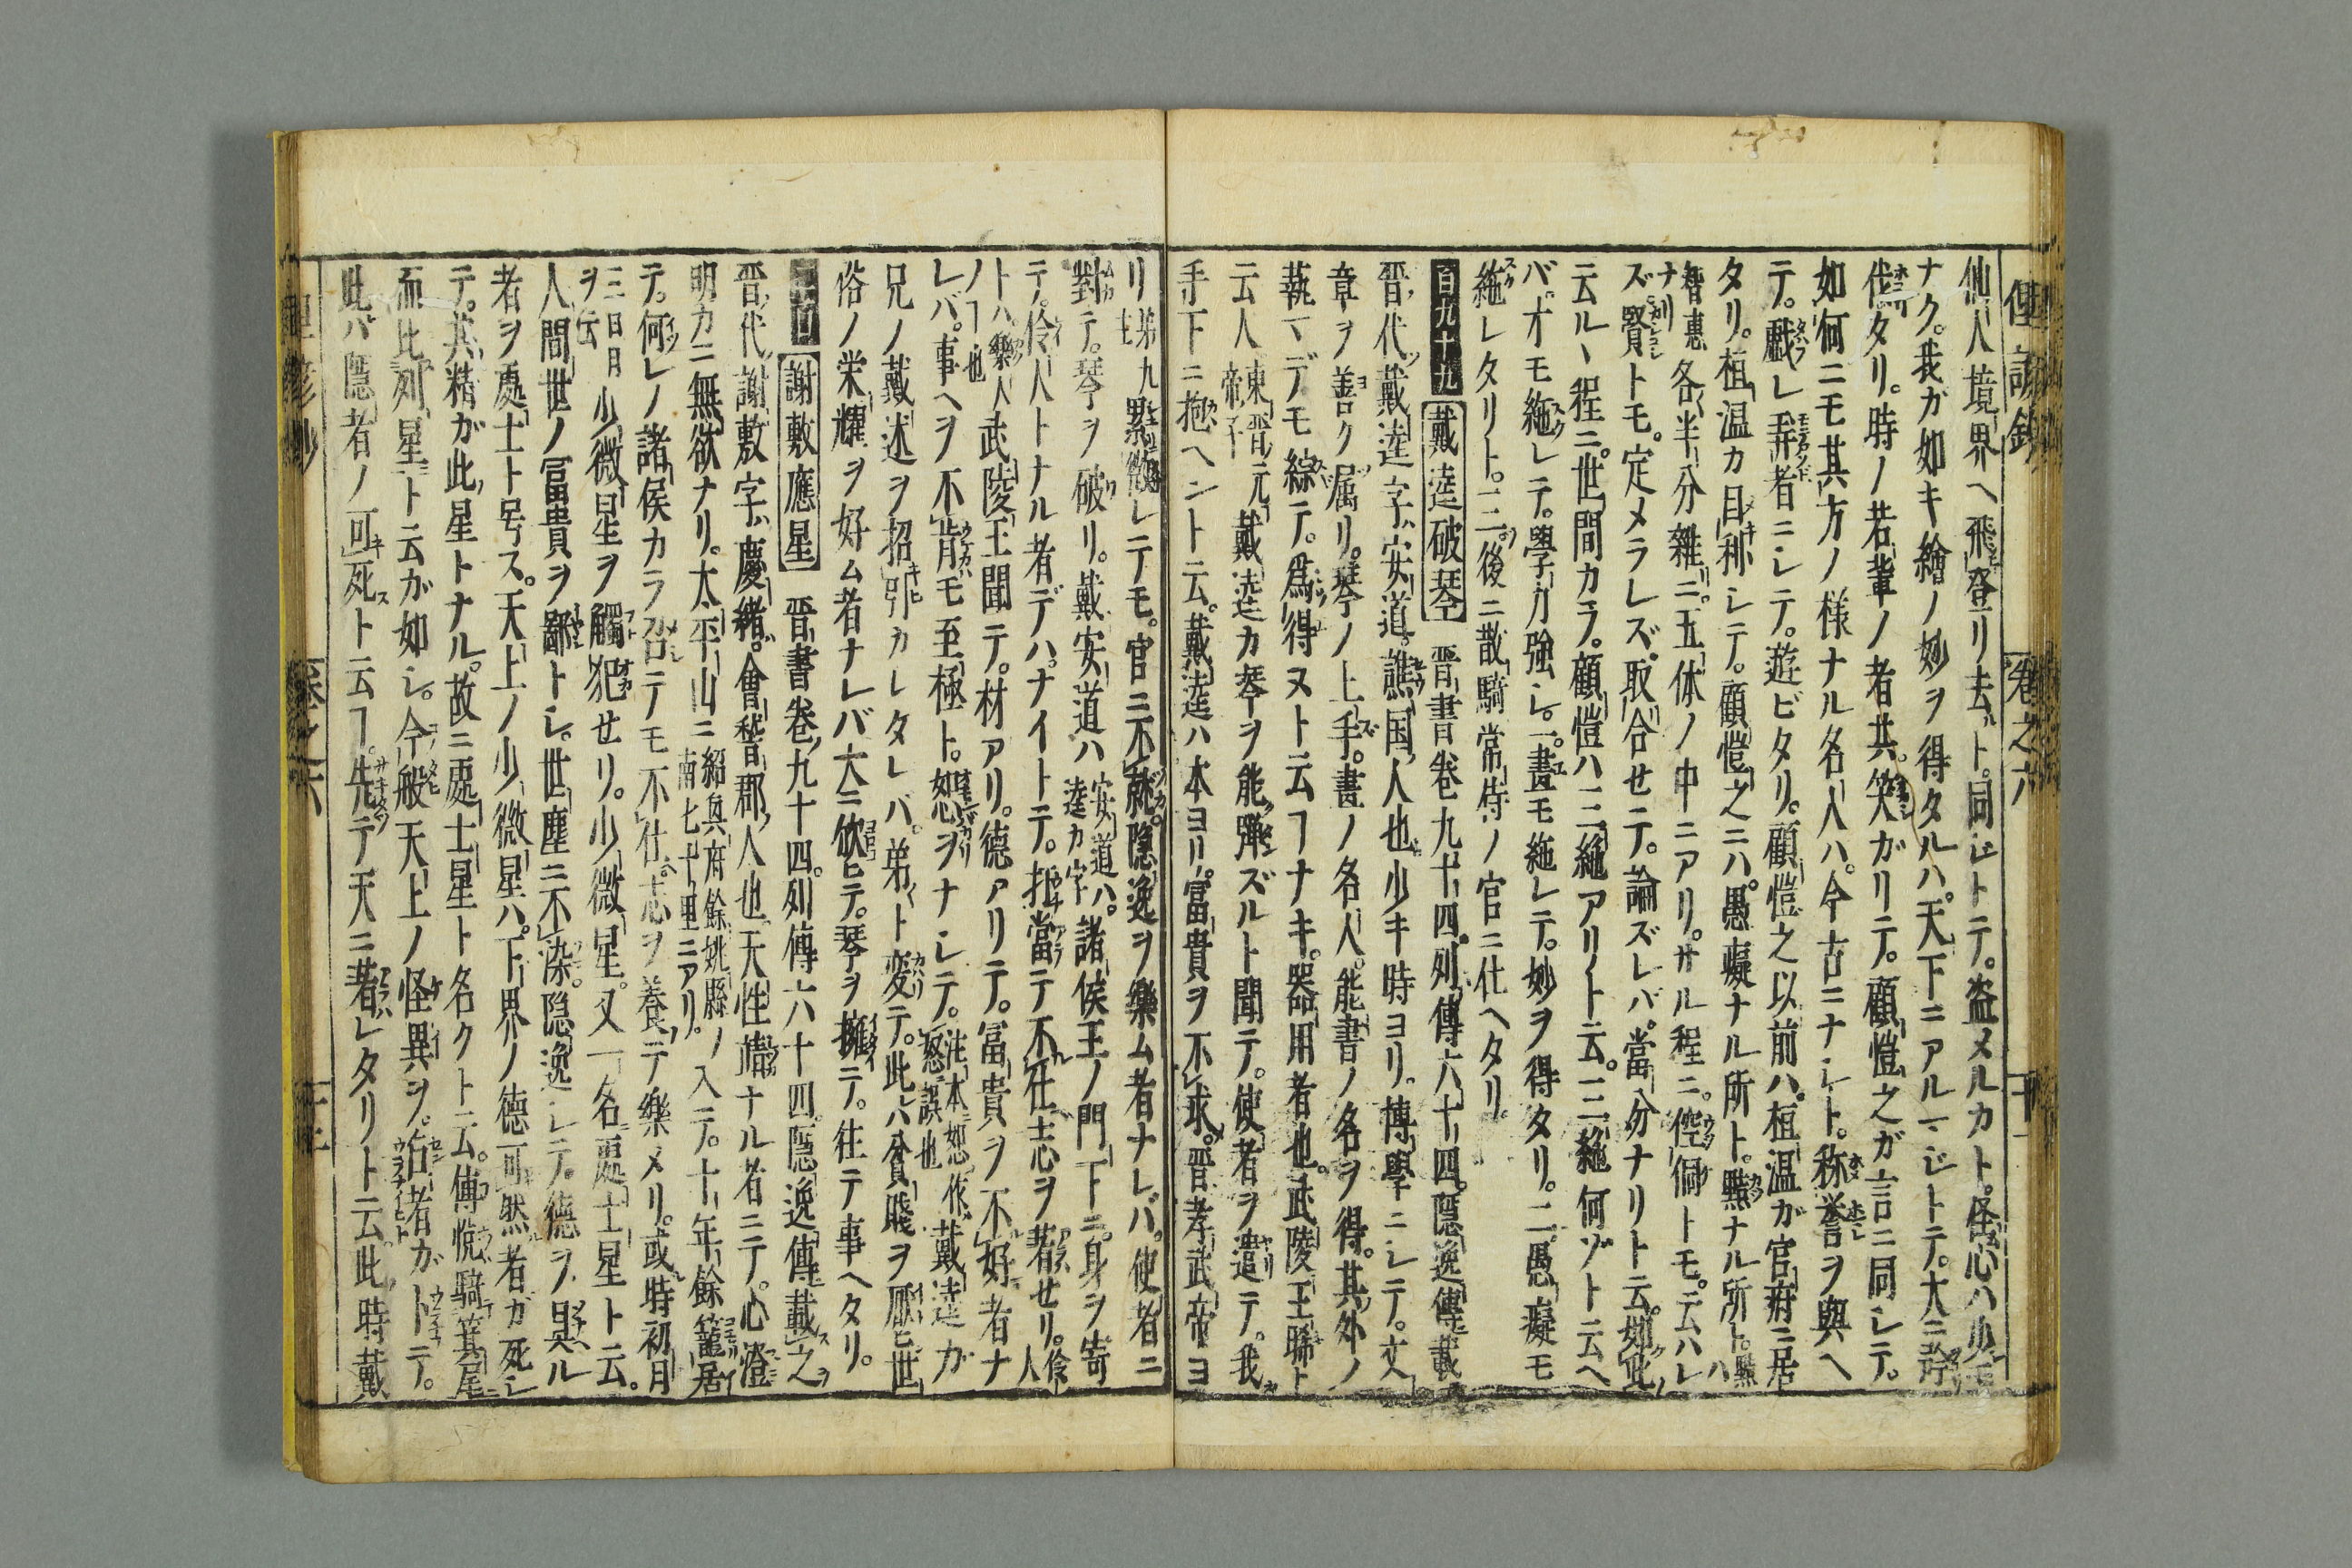 俚諺鈔 卷之六 十一
仙人境界ヘ飛登リ去ト。同ジトテ。盗メルカト。怪心ハ少モ
ナク。我ガ如キ繪ノ妙ヲ得タルハ。天下ニアルマジトテ。大ニ
タリ。時ノ若輩ノ者共。笑ガリテ。顧愷之ガ言ニ同レテ。
如何ニモ其方ノ様ナル名人ハ。今古ニナシト。称誉ヲ與ヘ
テ。戯レ弄者ニシテ。遊ビタリ。顧愷之以前ハ。桓温ガ官府ニ居
タリ。桓温カ目利シテ。顧愷之ニハ。愚癡ナル所ト。黠ナル所ト。黠ハ
智惠ナリ各半分雜ニ。五体ノ中ニアリ。サル程ニ。倥侗トモ。云ハレ
ズ。賢トモ。定メラレズ。取合セニテ。論ズレバ。當分ナリト云。如此
云ル丶程ニ。世間カラ。顧愷ハ三絶アリト云。三絶何ゾト云ヘ
バ。才モ絶レテ。學力強シ。一。畫モ絶レテ。妙ヲ得タリ。二。愚癡モ
絶レタリト。三。後ニ散騎常侍ノ官ニ仕ヘタリ
百九十九 戴逵破琴 晋書卷九十四。列傳六十四。隱逸傳載
晋代戴逵字安道。譙国人也少キ時ヨリ。博學ニシテ。文
章ヲ善ク属リ。琴ノ上手。書ノ名人。能書ノ名ヲ得。其外ノ
藝マデモ綜テ。爲得ヌト云ヿナキ。器用者也。武陵王晞ト
云人東晋元帝子戴逵カ琴ヲ能彈ズルト聞テ。使者ヲ遣テ。我
手下ニ抱ヘントト云。戴逵ハ本ヨリ。富貴ヲ不求。晋孝武帝ヨ
リ第九世累徴レテモ。官ニ不就。隐逸ヲ樂ム者ナレバ。使者ニ
對テ。琴ヲ破リ。戴安道ハ安道ハ。逵カ字諸侯王ノ門下ニ。身ヲ寄
テ。伶人トナル者デハ。ナイトテ。抵當テ不仕志ヲ著セリ。伶人
トハ樂人ノヿ也武陵王聞テ。材アリ。德アリテ。冨貴ヲ不好者ナ
レバ。事ヘヲ不肯モ至極ト。恕ヲナシテ。注本恕作怒誤也戴逵ガ
兄ノ戴述ヲ招引カレタレバ。弟ト変テ。此ハ貧賤ヲ厭ヒ世
俗ノ栄耀ヲ好ム者ナレバ大ニ欣ヒテ。琴ヲ擁テ。往テ事ヘタリ。
二百 謝敷應星 晋書卷九十四。列傳六十四。隱逸傳載之
晋代謝敷字慶緒。會稽郡人也天性靖ナル者ニテ。心澄
明カニ無欲ナリ。太平山ニ紹興府餘姚縣ノ南七十里ニアリ。入テ。十年餘籠居
テ。何レノ諸侯カラ召テモ不仕。志ヲ養テ樂メリ。或時初月
三日月ヲ云少微星ヲ觸犯セリ。少微星。又一名處士星ト云。
人間世ノ冨貴ヲ鄙トシ。世塵ニ不染。隐逸シテ。德ヲ具ル
者ヲ處士ト号ス。天上ノ少微星ハ。下界ノ徳可然者ガ死シ
テ。其精ガ此星トナル。故ニ處士星ト名クト云。傅悦騎箕尾
而比列星ト云ガ如シ。今般天上ノ怪異ヲ。占者ガト テ。
此ハ隱者ノ可死ト云ヿ。先テ天ニ著レタリト云。此時戴
俚諺鈔 卷之六